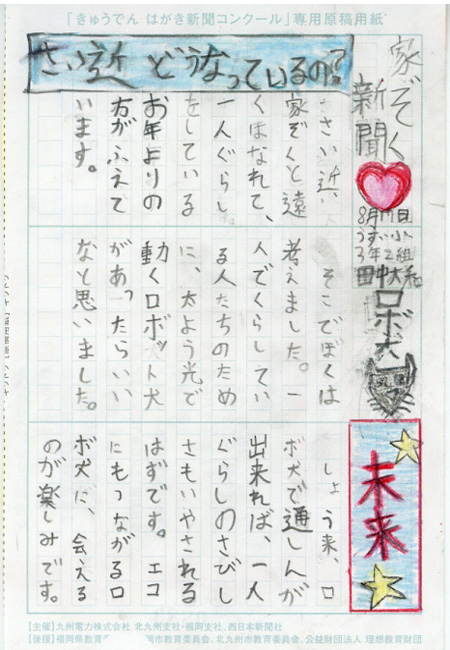 「きゅうでん はがき新聞コンクール」専用原稿用紙
家ぞく
新聞
8月11日
うすい小
3年2組
田中大和
ロボ犬
未来
さい近どうなっているの?
さい近、
家ぞくと遠
くはなれて、
一人ぐらし
をしている
お年よりの
方がふえて
います。
そこでぼくは
考えました。一
人でくらしてい
る人たちのため
に、太よう光で
動くロボット犬
があったらいい
なと思いました。
しょう来、ロ
ボ犬で通しんが
出来れば、一人
ぐらしのさびし
さもいやされる
はずです。エコ
にもつながるロ
ボ犬に、会える
のが楽しみです。
【主催】九州電力株式会社 北九州支社・福岡支社、西日本新聞社
【後援】福岡県教育 岡市教育委員会、北九州市教育委員会、公益財団法人 理想教育財団